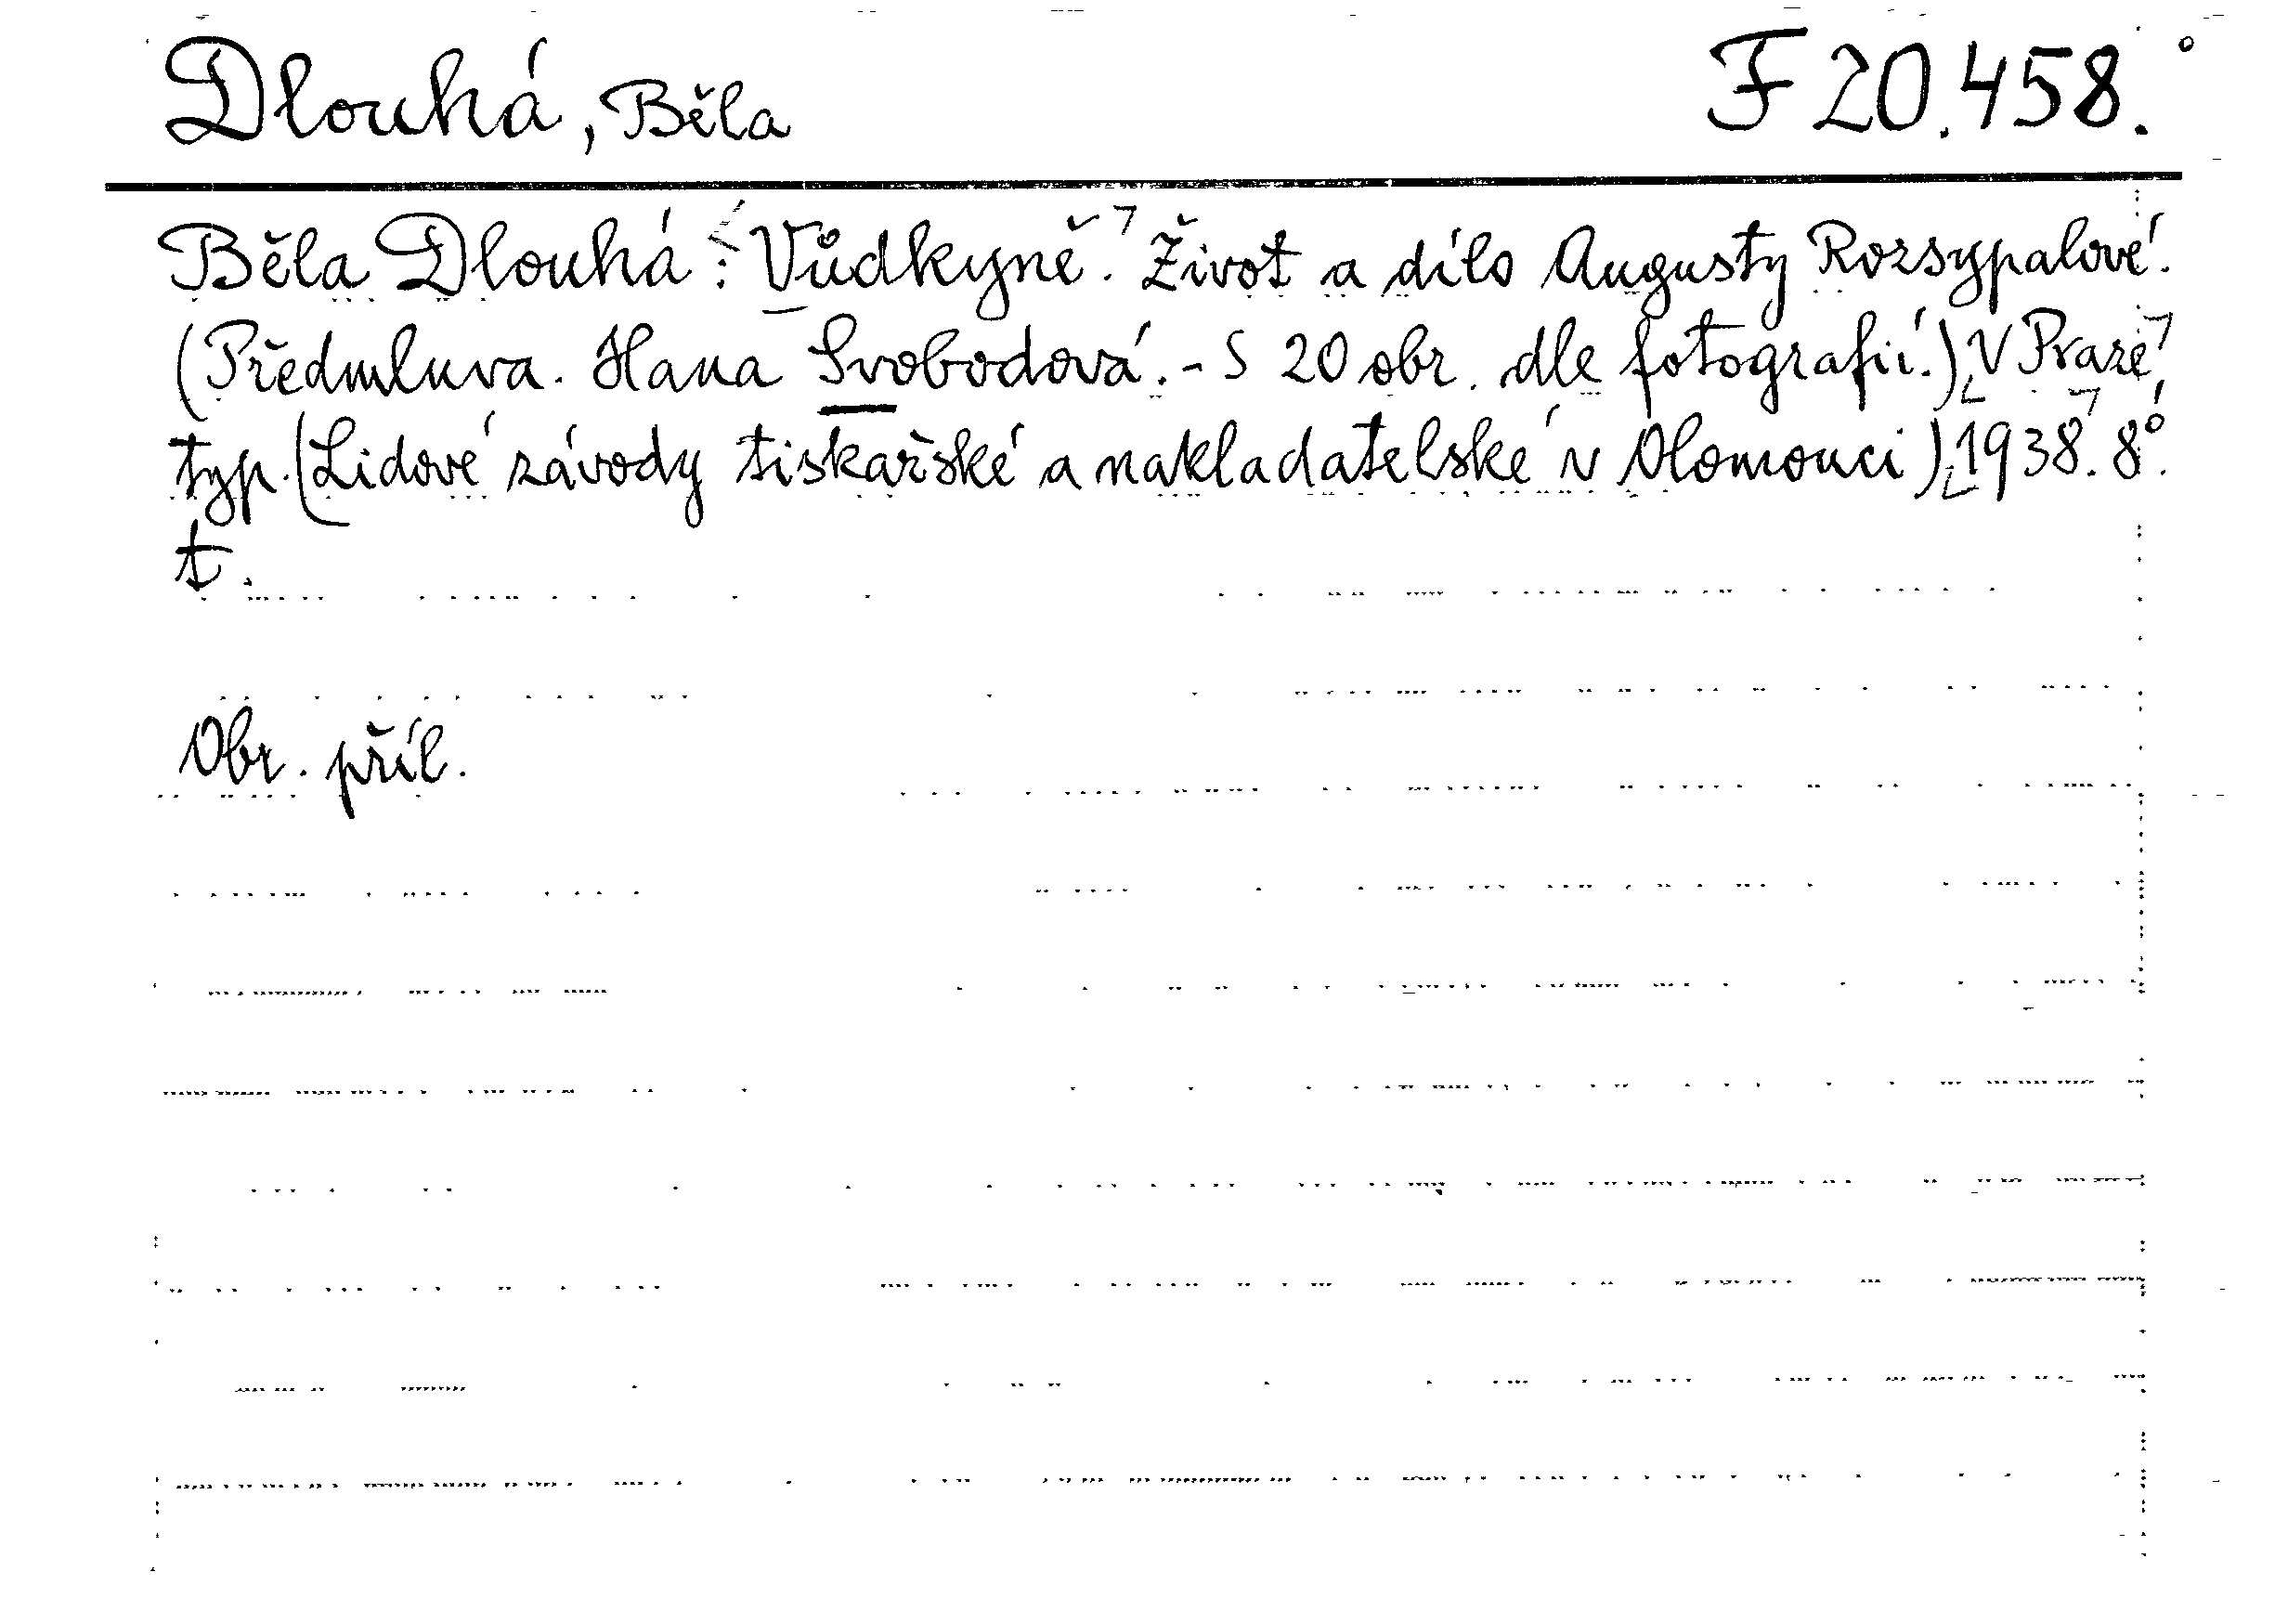 Dlouhá, Běla
F 20.458.
Běla Dlouhá: Vůdkyně. Život a dílo Augusty Rozsypalové.
(Předmluva. Hana Svobodová. - S 20 obr. dle fotografií.) V Praze,
typ. (Lidové závody tiskařské a nakladatelské v Olomouci) 1938. 8°.
t.
Obr. příl.